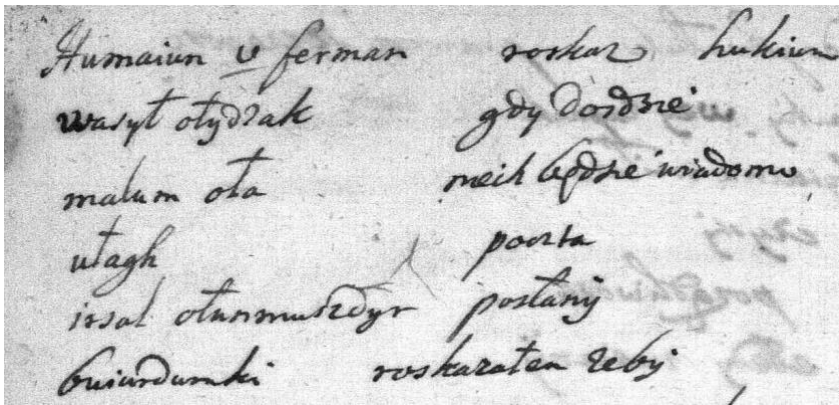 Humaiun v ferman roskaz hukium
wasył ołydzak gdy doydzie
malum oła niech będzie wiadomo
ułagh poczta
irsal ołunmuszdyr posłany
buiurdumki roskazałem zeby